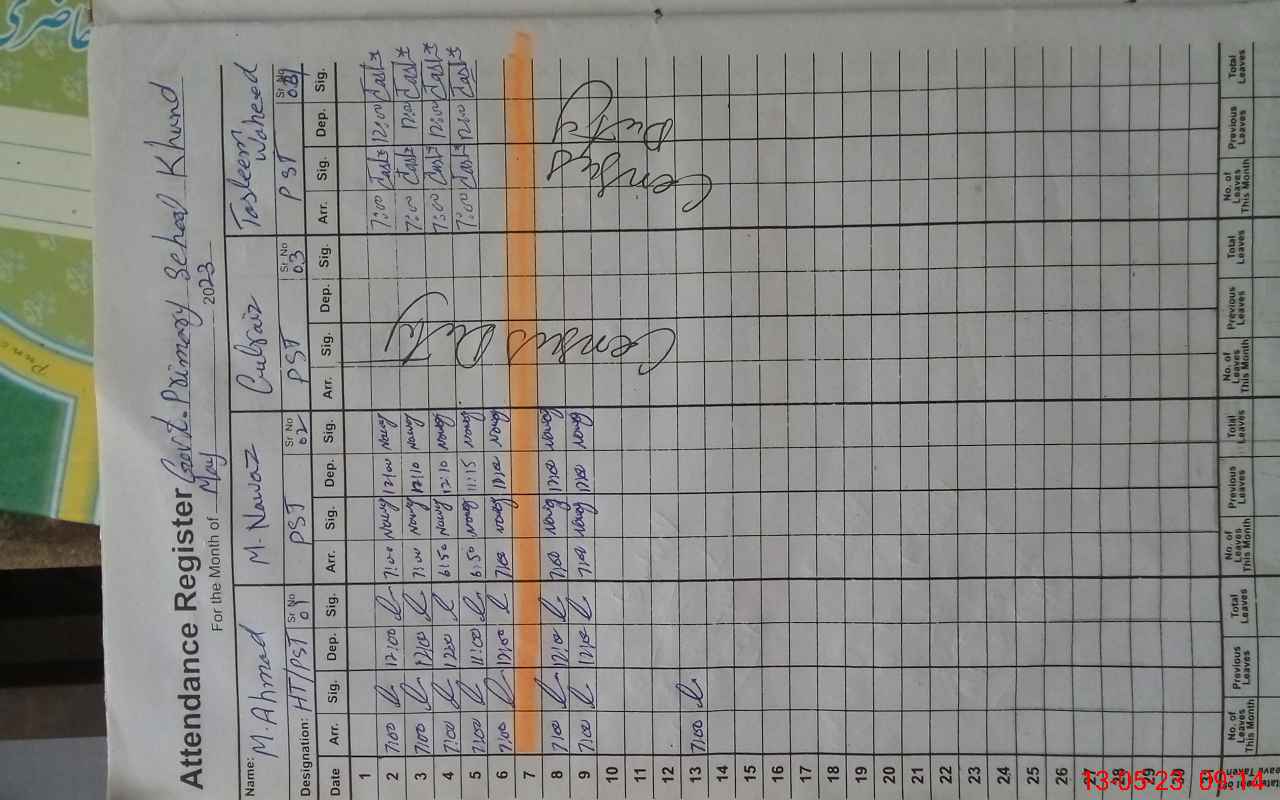 حاضری
Attendance Register Govt. Primary School Khund
For the Month of May 2023
Name: M. Ahmad M. Nawaz Gulfaiz Tasleem Waheed
Designation: HT/PST Sr No 01 PST Sr No 02 PST Sr No 03 PST Sr No 04
Date Arr. Sig. Dep. Sig. Arr. Sig. Dep. Sig. Arr. Sig. Dep. Sig. Arr. Sig. Dep. Sig.
1
2 7:00 12:00 7:00 Nawaz 12:00 Nawaz 7:00 12:00
3 7:00 12:00 7:00 Nawaz 12:10 Nawaz 7:00 12:00
4 7:00 12:00 6:50 Nawaz 12:10 Nawaz 7:00 12:00
5 7:00 11:00 6:50 Nawaz 11:15 Nawaz 7:00 12:00
6 7:00 12:00 7:00 Nawaz 12:00 Nawaz
7
8 7:00 12:00 7:00 Nawaz 12:00 Nawaz
9 7:00 12:00 7:00 Nawaz 12:00 Nawaz
10
11
12
13 7:00
14
15
16
17
18
19
20
21
22
23
24
25
26
27
28
29
30
31
Census Duty
Census Duty
No. of Leaves This Month Previous Leaves Total Leaves No. of Leaves This Month Previous Leaves Total Leaves No. of Leaves This Month Previous Leaves Total Leaves No. of Leaves This Month Previous Leaves Total Leaves
13-05-23 09:14